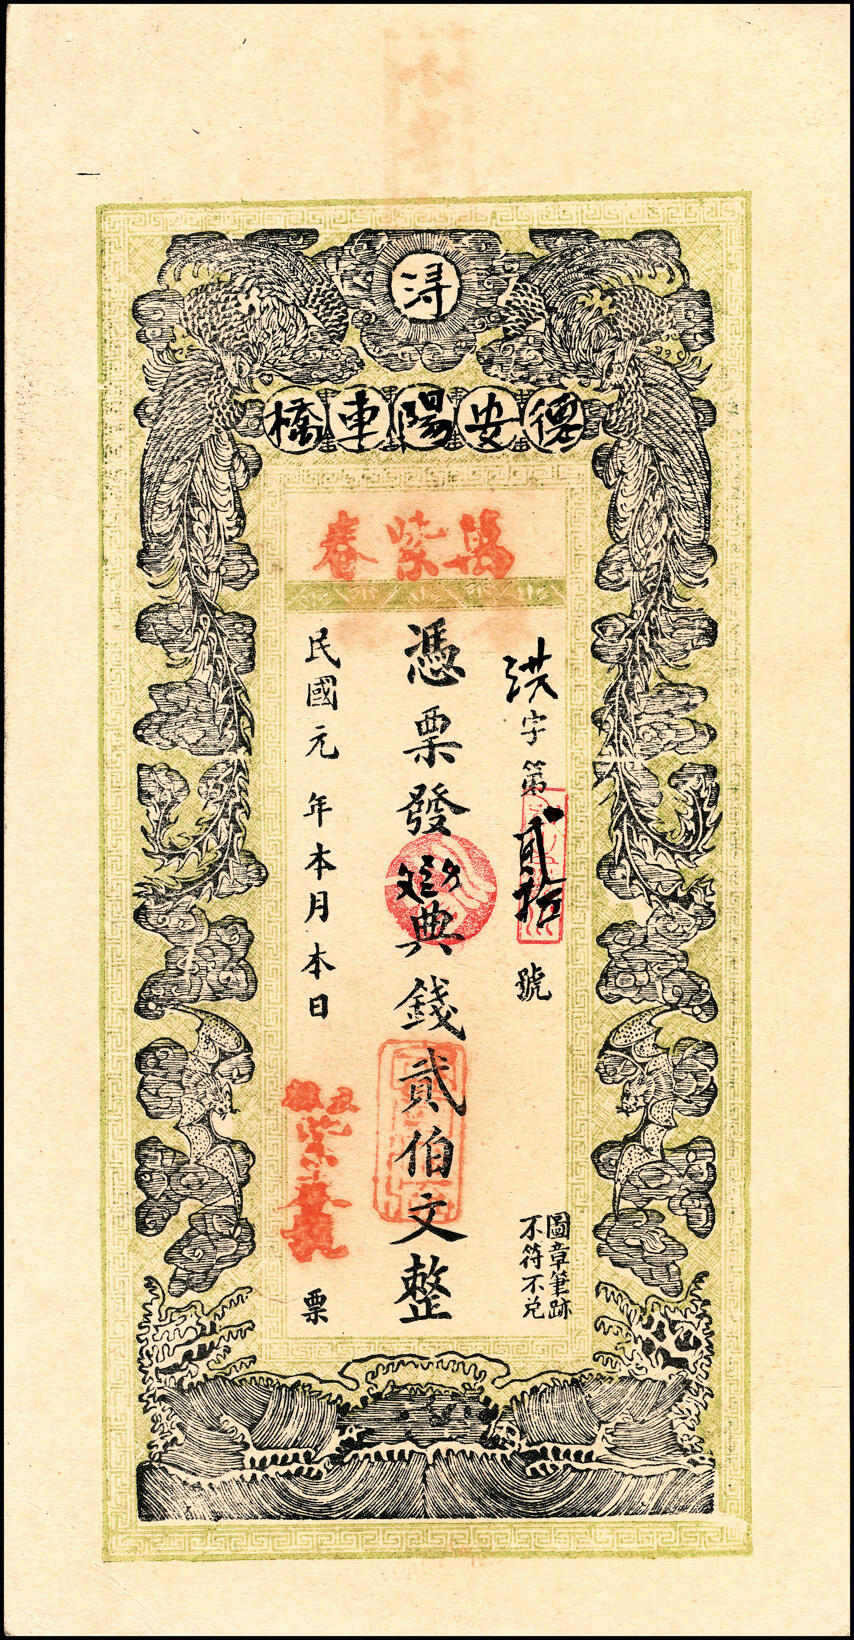 潯
德安陽車橋
萬紫春
洪字第貳拾號
憑票發典錢貳伯文整
民國元年本月本日
紫春
票
圖章筆跡
不符不兌